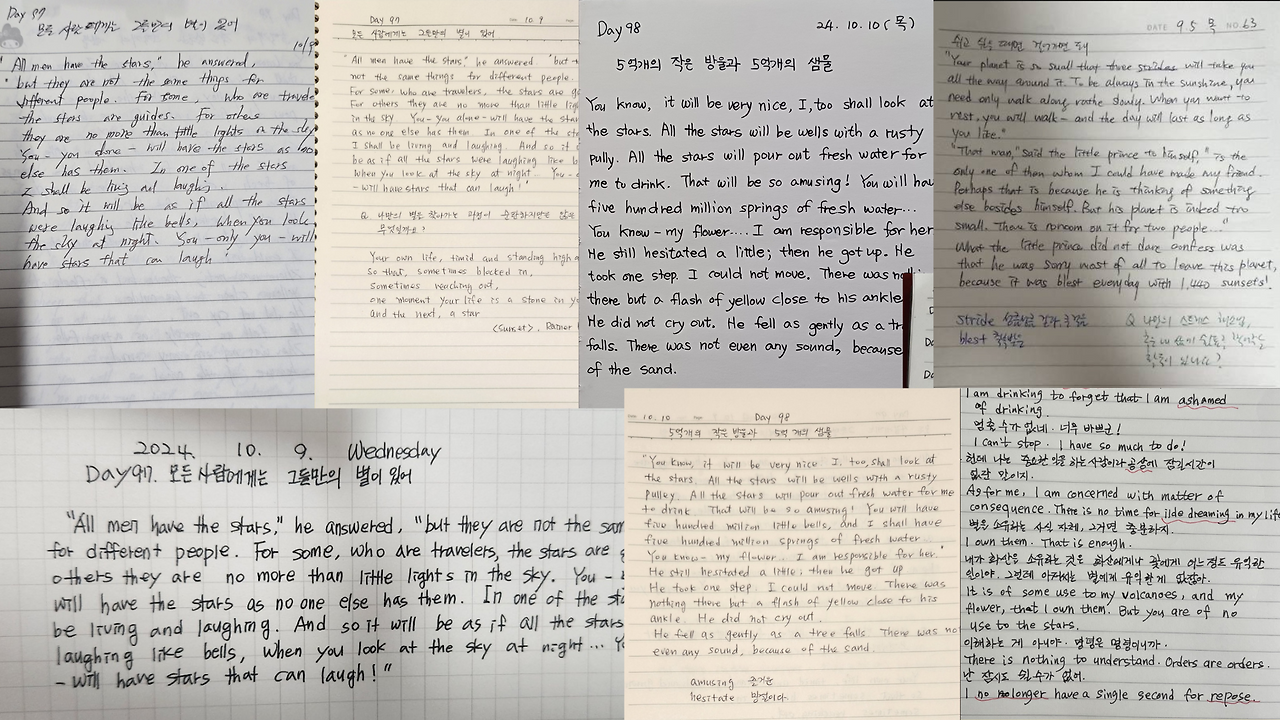 Day 97
모든 사람에게는 그들만의 별이 있어
10/9
"All men have the stars," he answered
"but they are not the same things for
different people. For some, who are travele
the stars are guides. For others
they are no more than little lights in the sky
You - you alone - will have the stars as
else has them. In one of the stars
I shall be living and laughing.
And so it will be as if all the stars
were laughing like bells, when you look
the sky at night. You - only you - will
have stars that can laugh!
Day 97
10. 9
모든 사람에게는 그들만의 별이 있어
"All men have the stars," he answered. "but t
not the same things for different people.
For some, who are travelers, the stars are g
For others they are no more than little lig
the sky You - you alone - will have the star
one else has them In one of the st
I shall be living and laughing. And so it
be as if all the stars were laughing like b
When you look at the sky at night. You -
- will have stars that can laugh!"
Q.
my own life, timid and standing high
so that, sometimes blocked in,
sometimes reaching out,
one moment your life is a stone in y
and the next, a star
<Sunset>, Rainer
Day 98
24. 10. 10 (목)
5억개의 작은 방울과 5억개의 샘물
You know, it will be very nice, I, too shall look at
the stars. All the stars will be wells with a rusty
pully. All the stars will pour out fresh water for
me to drink. That will be so amusing! You will hav
five hundred million springs of fresh water...
You know - my flower.... I am responsible for her
He still hesitated a little; then he got up. He
took one step. I could not move. There was no
there but a flash of yellow close to his ankle
He did not cry out. He fell as gently as a tr
falls. There was not even any sound, because
of the sand.
DATE 9.5 목 NO.63
"Your planet is so small that three strides will take you
all the way around it. To be always in the sunshine, you
need only walk along rathe slowly. When you want to
rest, you will walk - and the day will last as long as
you like."
"That man," said the little prince to himself, "is the
only one of them whom I could have made my friend.
Perhaps that is because he is thinking of something
else besides himself. But his planet is indeed too
small. There is no room on it for two people..."
What the little prince did not dare confess was
that he was sorry most of all to leave this planet,
because it was blest everyday with 1,440 sunsets!.
stride 성큼성큼 걷다, 큰 걸음
blest 축복받은
Q 나만의 스트레스 해소법,
2024. 10. 9. Wednesday
Day 97. 모든 사람에게는 그들만의 별이 있어
"All men have the stars," he answered, "but they are not the sam
for different people. For some, who are travelers, the stars are g
others they are no more than little lights in the sky. You -
will have the stars as no one else has them. In one of the sta
be living and laughing. And so it will be as if all the stars
laughing like bells, when you look at the sky at night... Y
- will have stars that can laugh!"
10. 10
Day 98
5억개의 작은 방울과 5억 개의 샘물
"You know, it will be very nice I, too, shall look at
the stars. All the stars will be wells with a rusty
pulley. All the stars will pour out fresh water for me
to drink. That will be so amusing! You will have
five hundred million little bells, and I shall have
five hundred million springs of fresh water
You know - my flower. I am responsible for her."
He still hesitated a little; then he got up
He took one step. I could not move There was
nothing there but a flash of yellow close to his
ankle. He did not cry out.
He fell as gently as a tree falls. There was no
even any sound, because of the sand.
amusing 즐거운
hesitate 망설이다
I am drinking to forget that I am ashamed
of drinking.
멈출 수가 없네. 너무 바쁘군!
I can't stop. I have so much to do!
헌데 나는 중요한 일을 하는 사람이라 공상에 잠길 시간이
없단 말이지.
As for me, I am concerned with matter of
consequence. There is no time for ilde dreaming in my life
별을 소유하는 사실 자체, 그거면 충분하지.
I own them. That is enough.
내가 화산을 소유하는 것은 화산에게나 꽃에게 어느 정도 유익한
일이야. 그런데 아저씨는 별에게 유익한 게 없잖아.
It is of some use to my volcanoes, and my
flower, that I own them. But you are of no
use to the stars.
이해하는 게 아니야. 명령은 명령이니까.
There is nothing to understand. Orders are orders.
난 잠시도 쉴 수가 없어.
I no nolonger have a single second for repose.